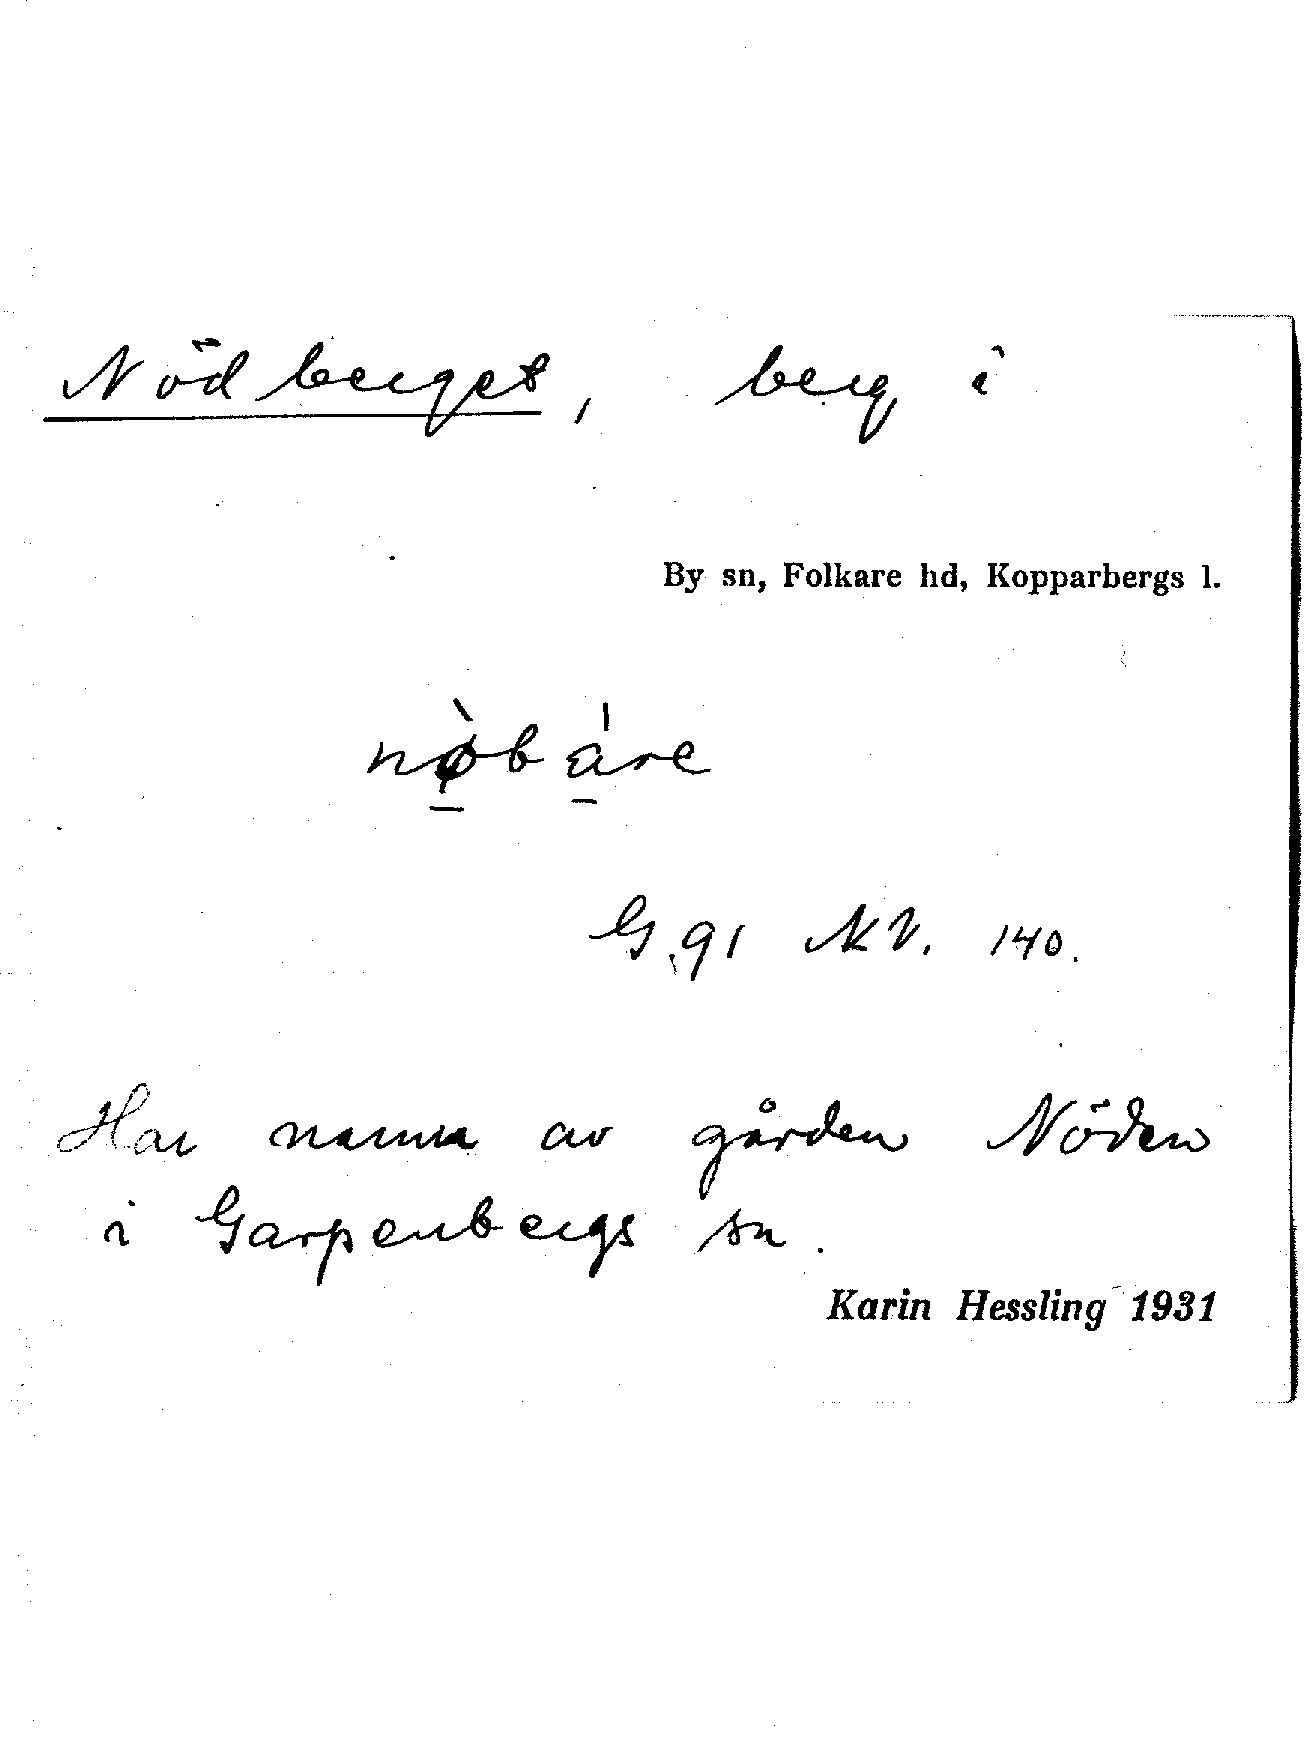 Nödberget, berg i
By sn, Folkare hd, Kopparbergs l.
nø̀báre
G. 91 NV. 140.
Har namn av gården Nöden
i Garpenbergs sn.
Karin Hessling 1931